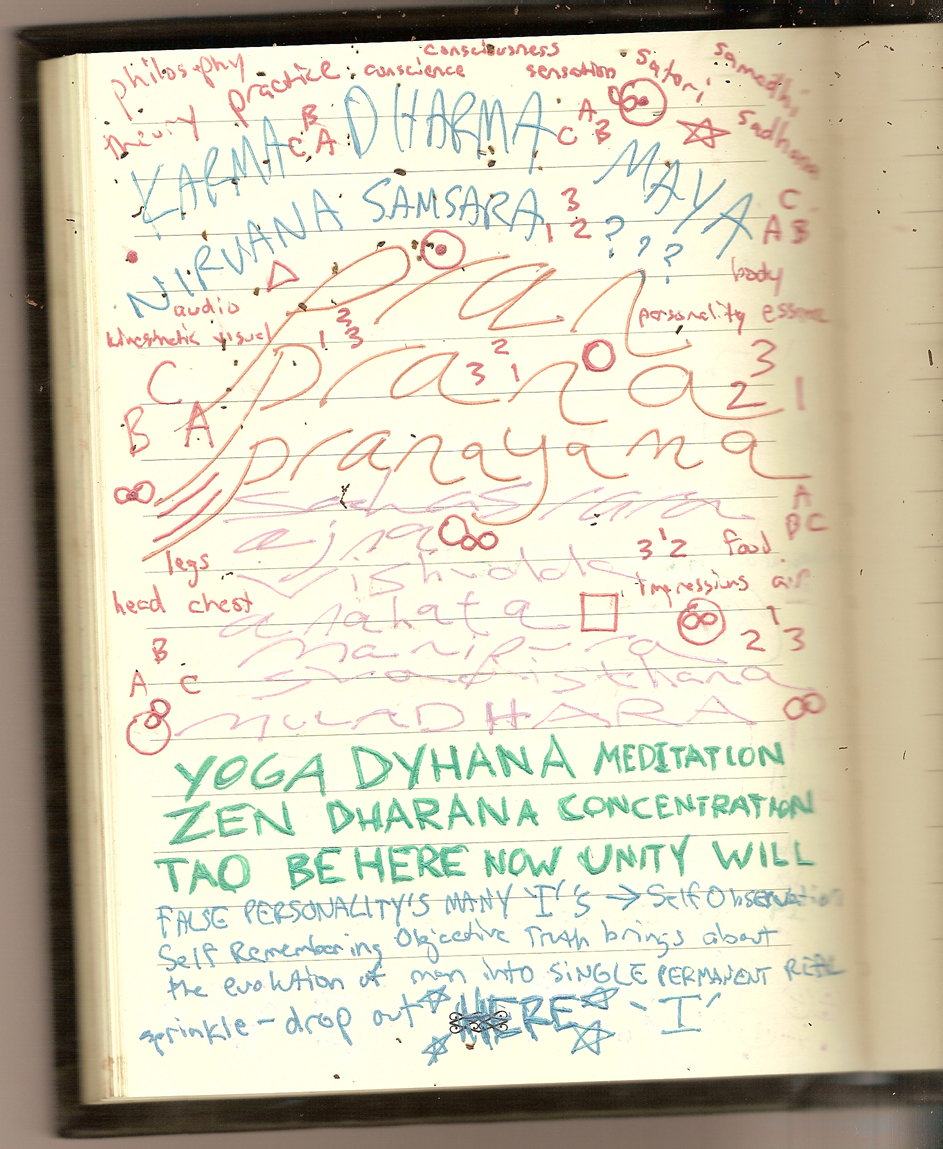 consciousness
philosophy
conscience
sensation
satori
samadhi
sadhana
theory practice
B
C A
A
C B
KARMA DHARMA
MAYA
C
A B
NIRVANA SAMSARA
3
1 2
? ? ?
body
personality essence
audio
kinesthetic visual
Pran
2
1 3
2
3 1
3
2 1
C
B A
prana
pranayama
sahasrara
A
B C
ajna
1
3 2
food
impressions air
legs
head chest
Vishudda
anahata
1
2 3
B
A C
manipura
svadisthana
MULADHARA
YOGA DYHANA MEDITATION
ZEN DHARANA CONCENTRATION
TAO BE HERE NOW UNITY WILL
FALSE PERSONALITY'S MANY 'I''S → Self Observation
Self Remembering Objective Truth brings about
the evolution of man into SINGLE PERMANENT REAL
sprinkle - drop out HERE 'I'